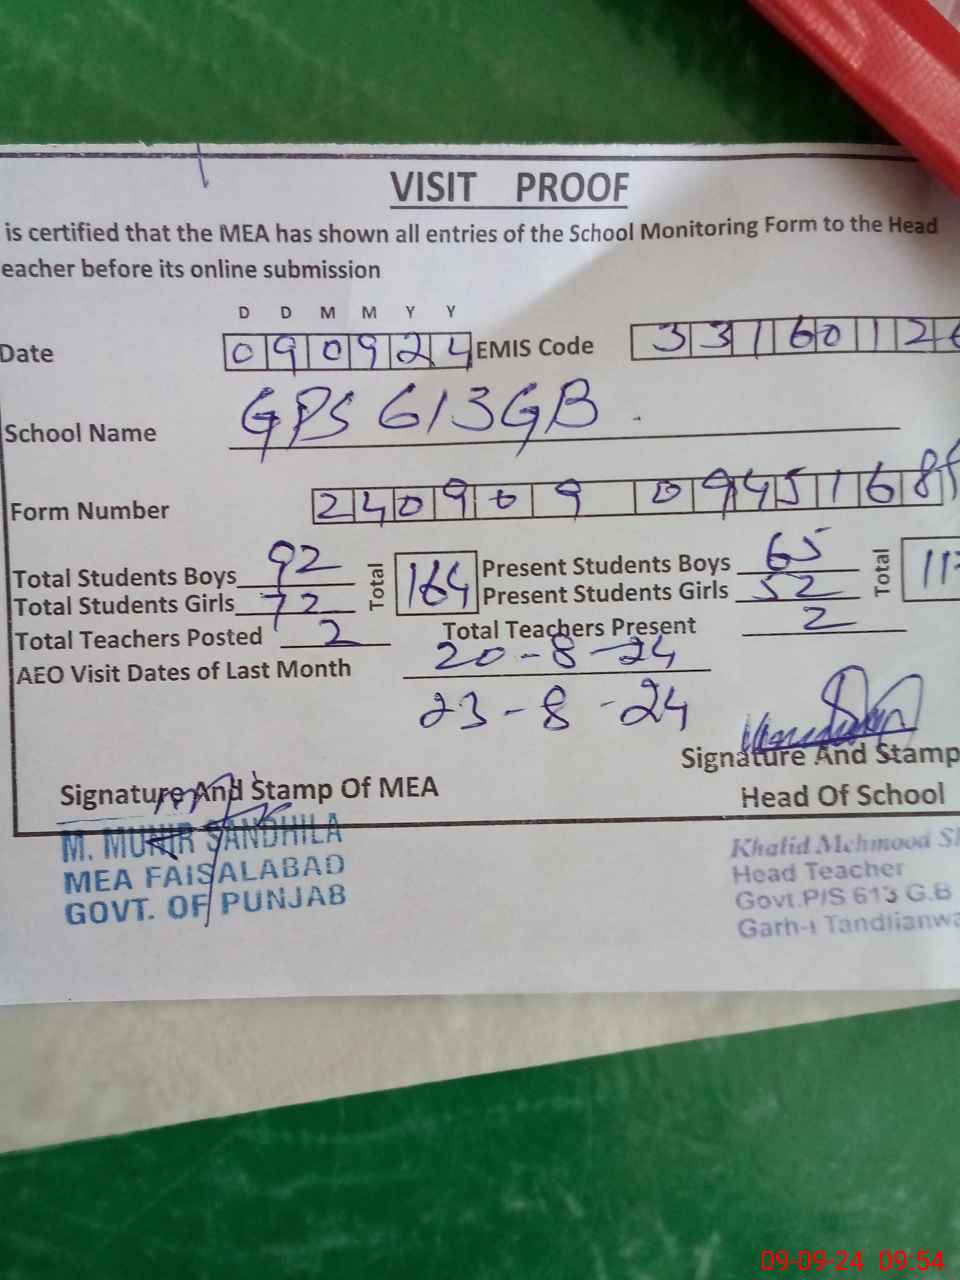 VISIT PROOF
is certified that the MEA has shown all entries of the School Monitoring Form to the Head
eacher before its online submission
D D M M Y Y
Date 090924 EMIS Code 33160126
School Name GPS 613GB
Form Number 240909 09451688
Total Students Boys 92 Total 164 Present Students Boys 65 Total 117
Total Students Girls 72 Present Students Girls 52
Total Teachers Posted 2 Total Teachers Present 2
AEO Visit Dates of Last Month 20-8-24
23-8-24
Signature And Stamp
Signature And Stamp Of MEA Head Of School
M. MUNIR SANDHILA
MEA FAISALABAD
GOVT. OF PUNJAB
Khalid Mehmood
Head Teacher
Govt.P/S 613 G.B
Garh-i Tandlianwa
09-09-24 09:54